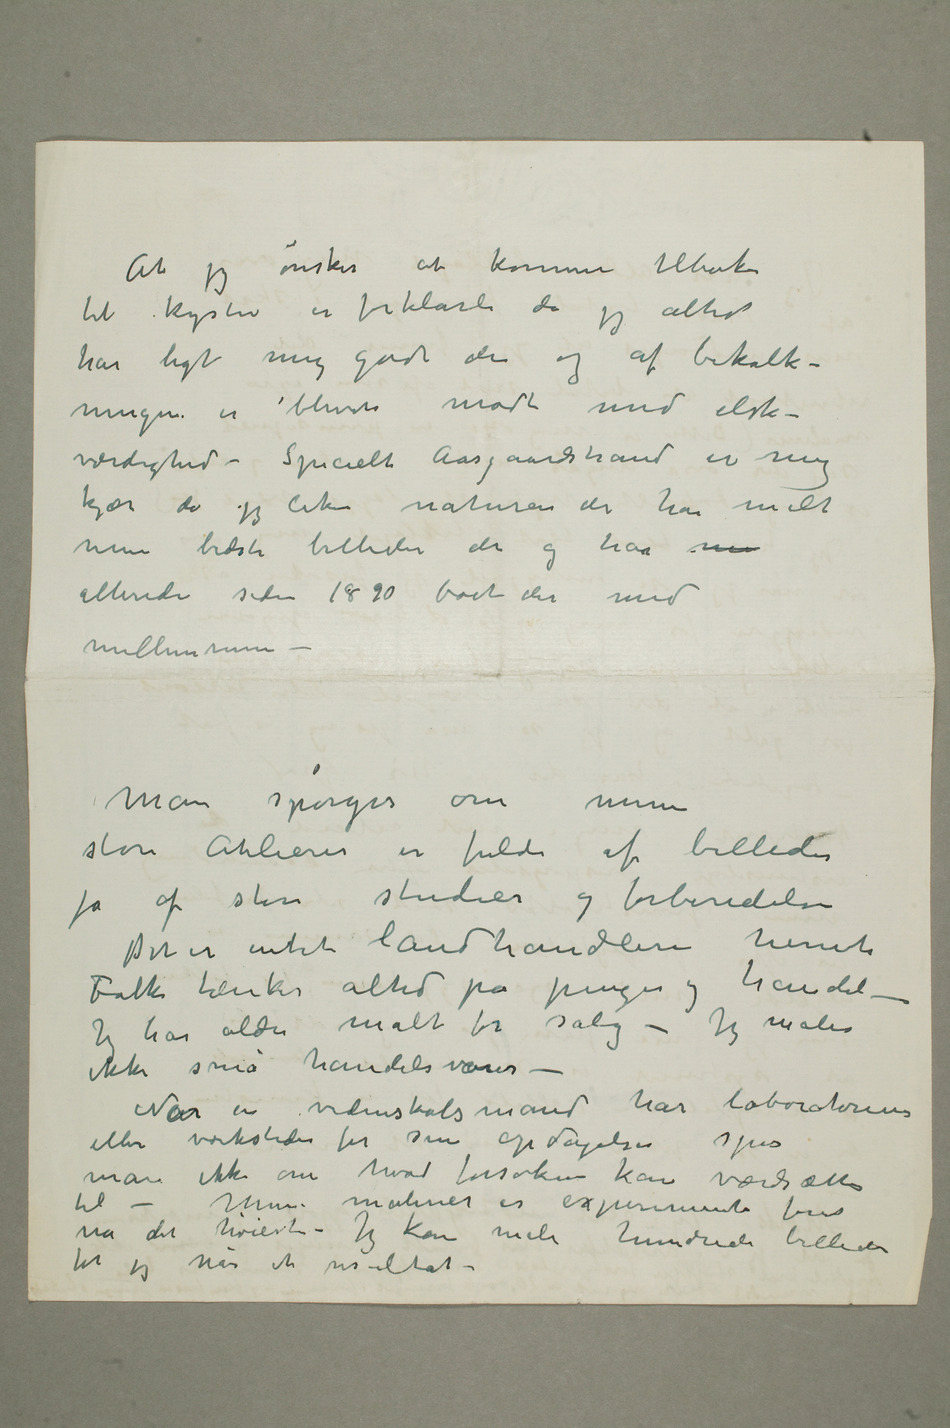 At jeg ønsker at komme tilbake
til kysten er forklarli da jeg altid
har ligt mig godt der og af bekalk–
ningen er blevet mødt med elsk–
værdighed – Specielt Aasgaardstrand er mig
kjær da jeg liker naturen der har malt
mine bedste billeder der og har
allerede siden 1890 boet der med
mellemrum –
Man spørges om mine
store Atelierer er fulde af billeder
ja af store studier og forberedelser
Det er intet landhandleri hermet
Folk tænker altid på penge og handel –
Jeg har aldri malt for salg – Jeg maler
ikke små handelsvarer –
Når en videnskabsmand har laboratorium
eller værksteder for sine opdagelser spør
man ikke om hvad forsøkene kan værdsættes
til – Mine malerier er experimenter for å
nå det høieste – Jeg kan male hundrede billeder
før jeg når et resultat –